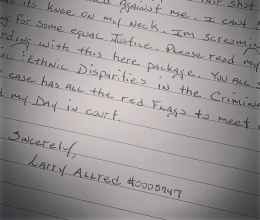 against me. I cant
its knee on my neck. Im screaming
for some equal Justice. Please read my
with this here package. You All
Ethnic Disparities in the Crimin
case has all the red Flags to meet
my Day in court.
Sincerely,
Larry Allred #0005747